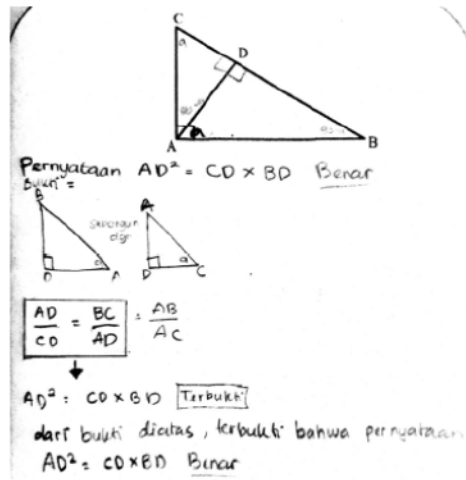 C
a
D
90-a
a
90-a
A
B
Pernyataan AD² = CD × BD Benar
Bukti =
B
A
Sebangun
dgn
a
a
D
A
D
C
AD/CD = BC/AD = AB/AC
AD² = CD × BD Terbukti
dari bukti diatas, terbukti bahwa pernyataan
AD² = CD × BD Benar